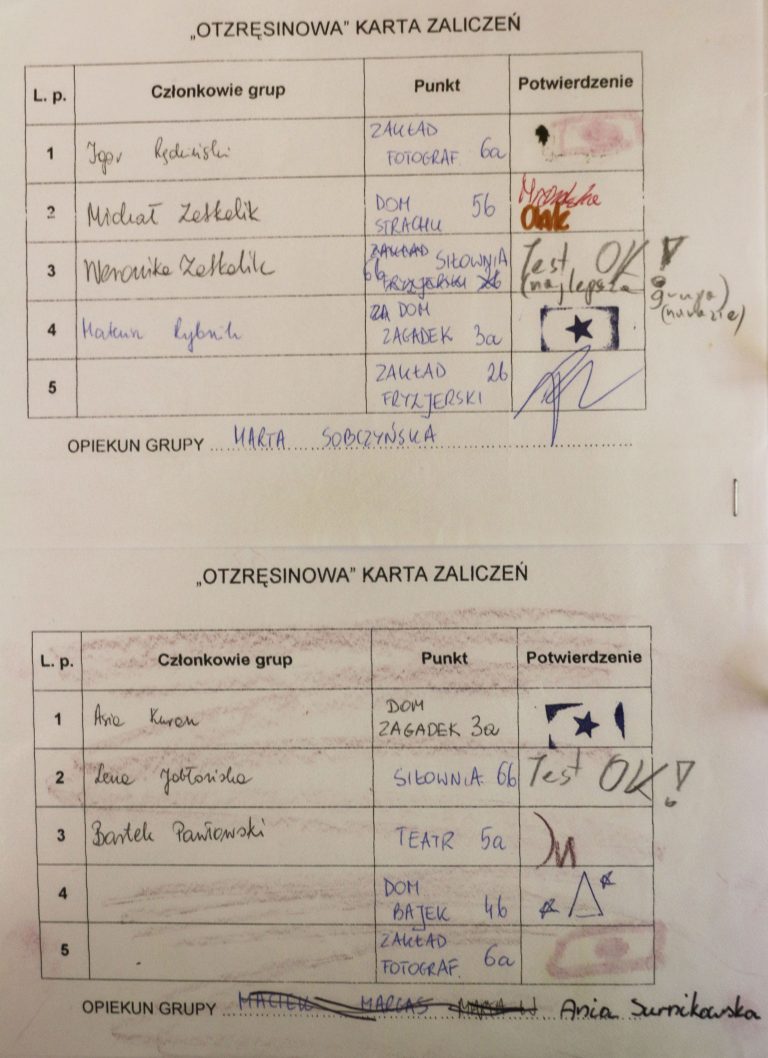 „OTZRĘSINOWA” KARTA ZALICZEŃ
L. p. Członkowie grup Punkt Potwierdzenie
1 Igor ZAKŁAD
FOTOGRAF 6a
2 Michał Zatkalik DOM 5b
STRACHU OaK
3 Weronika Zatkalik ZAKŁAD SIŁOWNIA Test OK!
6b FRYZJERSKI (najlepsza grupa)
(na razie)
4 Rybnik ZA DOM
ZAGADEK 3a
5 ZAKŁAD 2b
FRYZJERSKI
OPIEKUN GRUPY MARTA SOBCZYŃSKA
„OTZRĘSINOWA” KARTA ZALICZEŃ
L. p. Członkowie grup Punkt Potwierdzenie
1 Asia Kuran DOM
ZAGADEK 3a
2 Lena Jabłońska SIŁOWNIA 6b Test OK!
3 Bartek Pawłowski TEATR 5a
4 DOM
BAJEK 4b
5 ZAKŁAD
FOTOGRAF. 6a
OPIEKUN GRUPY MACIEK MARCAS Ania Surnikowska